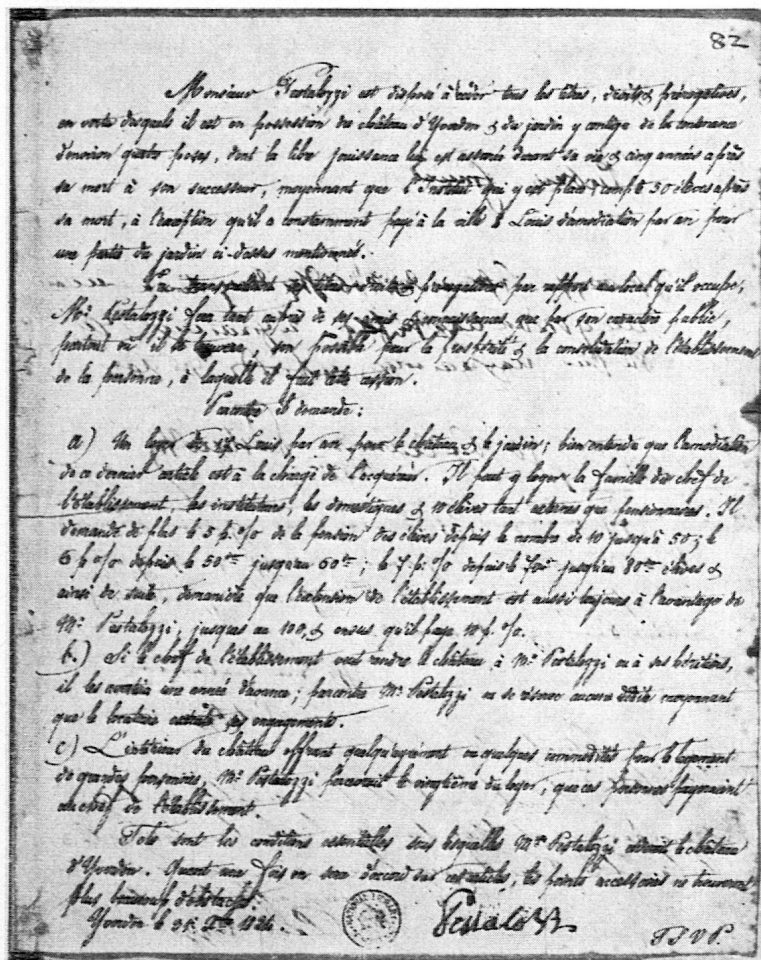 82
Monsieur Pestalozzi est disposé à céder tous les titres, droits & prérogatives,
en vertu desquels il est en possession du château d'Yverdon & du jardin y contigu de la contenance
d'environ quatre poses, dont la libre jouissance lui est assurée durant sa vie & cinq années après
sa mort à son successeur, moyennant que l'Institut qui y est placé, compte 50 élèves après
sa mort, à l'exception qu'il a constamment payé à la ville 8 Louis d'amodiation par an pour
une partie du jardin ci-dessus mentionné.
En transmettant ces titres, droits & prérogatives par rapport au local qu'il occupe,
Mr. Pestalozzi fera tant auprès de ses amis & connaissances, que par son caractère public,
partout où il se trouvera, son possible pour la prospérité & la consolidation de l'établissement
de la personne, à laquelle il fait cette cession.
Parcontre il demande:
a) Un loyer de Louis par an pour le château & le jardin; bien entendu que l'amodiation
de ce dernier article est à la charge de l'acquéreur. Il peut y loger la famille du chef de
l'établissement, les instituteurs, les domestiques & élèves tant externes que pensionnaires. Il
demande de plus le 5 p. % de la pension des élèves depuis le nombre de 10 jusqu'à 50; le
6 p % depuis le 50me jusqu'au 60me; le 7 p. % depuis le 70me jusqu'au 80me élèves &
ainsi de suite, de manière que l'extension de l'établissement est aussi toujours à l'avantage de
Mr. Pestalozzi, jusques au 100, & ensus qu'il paye 10 p. %.
b.) Si le chef de l'établissement veut rendre le château à Mr. Pestalozzi ou à ses héritiers,
il les avertira une année d'avance; parcontre Mr. Pestalozzi ne se réserve aucune dédite moyennant
que le locataire exécute ses engagements.
c) L'intérieur du château offrant quelqu'agrément ou quelques commodités pour le logement
de grandes personnes, Mr. Pestalozzi recevrait le vingtième du loyer, que ces personnes payeraient
au chef de l'établissement.
Tels sont les conditions essentielles sous lesquelles Mr. Pestalozzi céderait le château
d'Yverdon. Quant une fois on sera d'accord sur ces articles, les points accessoires ne trouveront
plus beaucoup d'obstacles.
Yverdon le
Pestalozzi
T S V P.